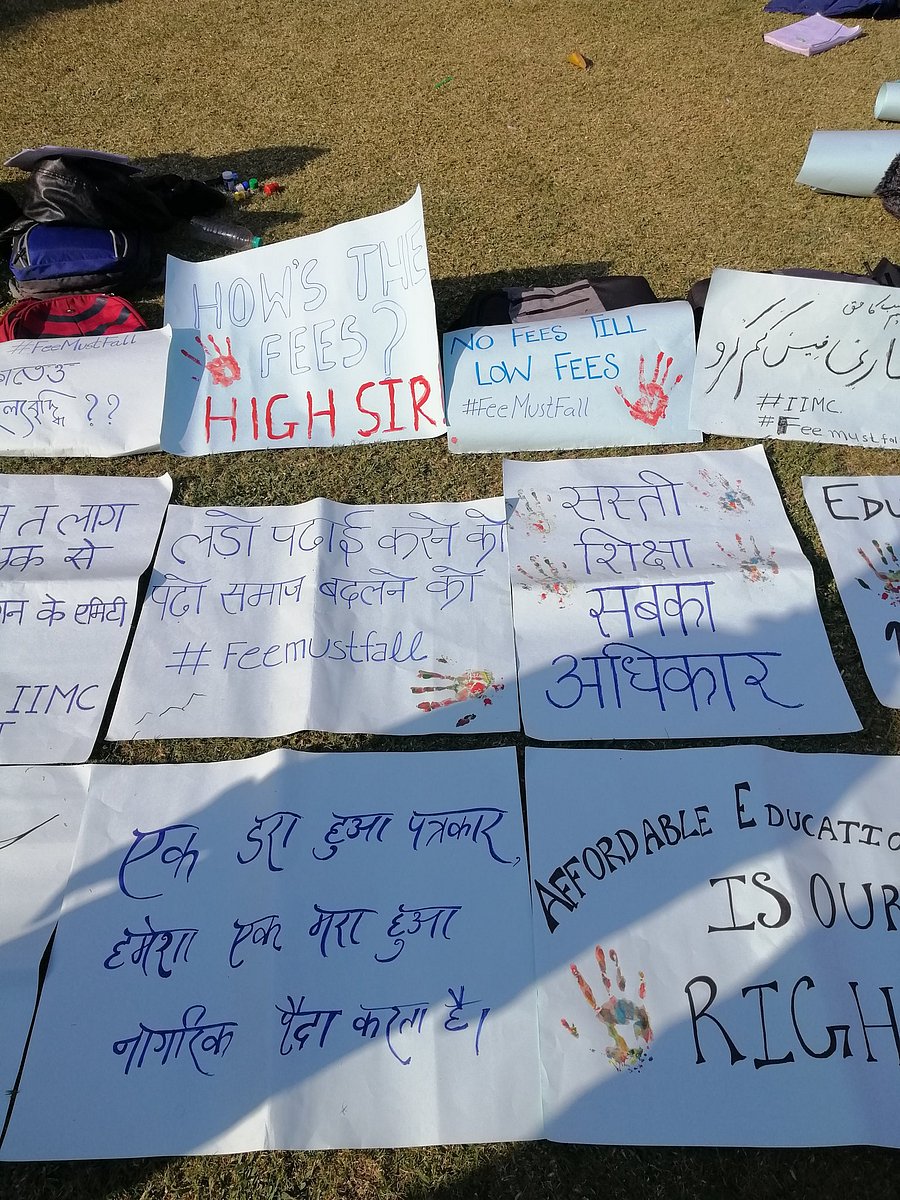 #FeeMustFall
??
HOW'S THE
FEES?
HIGH SIR
NO FEES TILL
LOW FEES
#FeeMustFall
ہماری فیس کم کرو
#IIMC.
#Feemustfall
त लाग
से
के एमिटी
IIMC
लडो पढाई करने को
पढो समाज बदलने को
#Feemustfall
सस्ती
शिक्षा
सबका
अधिकार
एक डरा हुआ पत्रकार,
हमेशा एक मरा हुआ
नागरिक पैदा करता है।
AFFORDABLE EDUCATIO
IS OUR
RIGH